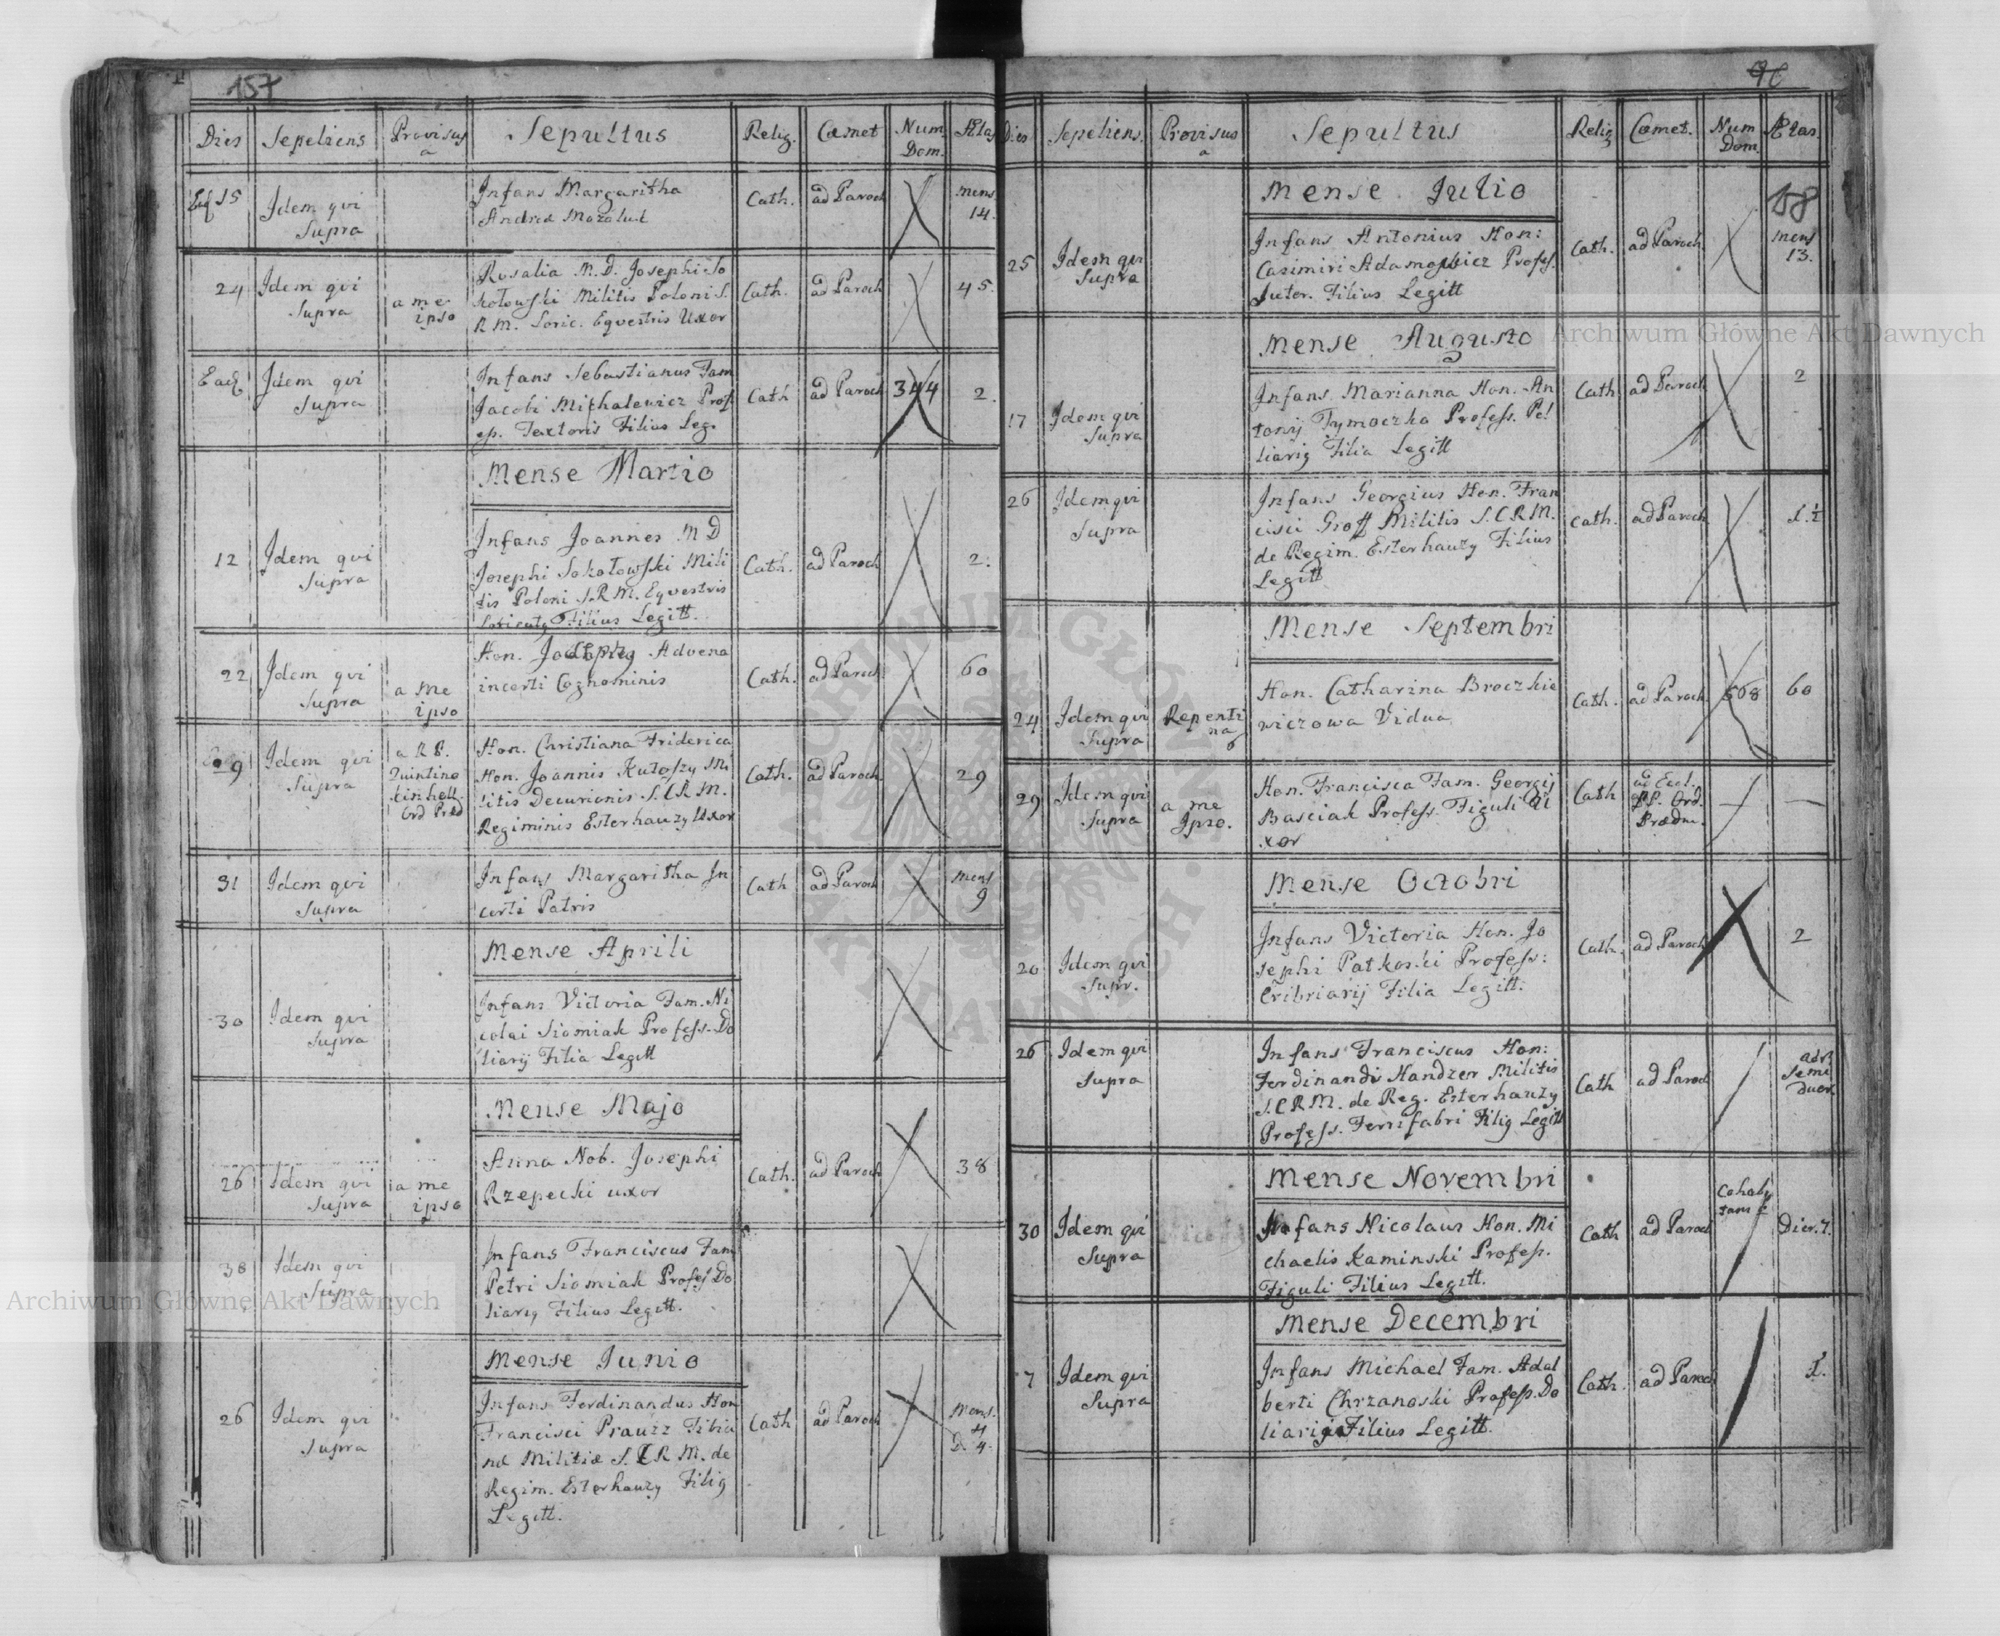 157
Dies Sepeliens Provisus a Sepultus Relig. Cœmet Num. Dom. Ætas
15 Idem qui Supra
Infans Margaritha
Andreæ
Cath. ad Paroch mens 14.
24 Idem qui Supra
a me ipso
Rosalia M.D. Josephi So
kołowski Militis Poloni S.
R M. Loric. Eqvestris Uxor
Cath. ad Paroch 45.
Ead. Idem qui Supra
Infans Sebastianus Fam
Jacobi Michalewicz Prof
ess. Textoris Filius Leg.
Cath ad Paroch 344 2.
Mense Martio
12 Idem qui Supra
Infans Joannes M D
Josephi Sokołowski Mili
tis Poloni S.R.M. Eqvestris
Filius Legitt.
Cath. ad Paroch 2.
22 Idem qui Supra
a me ipso
Hon. Advena
incerti Cognominis
Cath. ad Paroch 60
29 Idem qui Supra
a R P.
Quintino
Ord Præd
Hon. Christiana Friderica
Hon. Joannis Kutoszy Mi
litis Decurionis S.C R M.
Regiminis Esterhauzy Uxor
Cath. ad Paroch 29
31 Idem qui Supra
Infans Margaritha In
certi Patris
Cath ad Paroch mens 9
Mense Aprili
30 Idem qui Supra
Infans Victoria Fam. Ni
colai Siomiak Profess. Do
liarij Filia Legitt
Mense Majo
26 Idem qui Supra
a me ipso
Anna Nob. Josephi
Rzepecki uxor
Cath. ad Paroch 38
38 Idem qui Supra
Infans Franciscus Fam
Petri Siomiak Profess Do
liarij Filius Legitt.
Mense Junio
26 Idem qui Supra
Infans Ferdinandus Hon
Francisci Prauzz Tibici
næ Militiæ S. C R M. de
Regim. Esterhauzy Filig
Legitt.
Cath ad Paroch Mens. 4 D. 4.
Dies Sepeliens. Provisus a Sepultus Relig Cœmet. Num Dom. Ætas.
Mense Julio
158
25 Idem qui Supra
Infans Antonius Hon:
Casimiri Adamowicz Profess.
Sutor. Filius Legitt
Cath. ad Paroch mens 13.
Mense Augusto
17 Idem qui Supra
Infans Marianna Hon. An
tonij Tymoczko Profess. Pel
liarij Filia Legitt
Cath ad Paroch 2
26 Idem qui Supra
Infans Georgius Hon. Fran
cisci Groff Militis S.C R M.
de Regim. Esterhauzy Filius
Legitt
Cath. ad Paroch 1.½
Mense Septembri
24 Idem qui Supra
Repentina
Hon. Catharina Broczkie
wiczowa Vidua
Cath. ad Paroch 568 60
29 Idem qui Supra
a me Ipso.
Hon. Francisca Fam. Georgij
Basciak Profess. Figuli U
xor
Cath ad Eccl. PP. Ord. Prædic. —
Mense Octobri
20 Idem qui Supr.
Infans Victoria Hon. Jo
sephi Patkoski Profess:
Cribriarij Filia Legitt.
Cath. ad Paroch 2
26 Idem qui Supra
Infans Franciscus Hon:
Ferdinandi Handzer Militis
S.C R M. de Reg. Esterhauzy
Profess. Ferrifabri Filig Legitt
Cath ad Paroch
Mense Novembri
30 Idem qui Supra
Infans Nicolaus Hon. Mi
chaelis Kaminski Profess.
Figuli Filius Legitt.
Cath ad Paroch Dier. 7.
Mense Decembri
7 Idem qui Supra
Infans Michael Fam. Adal
berti Chrzanoski Profess. Do
liarij Filius Legitt.
Cath. ad Paroch 1.
Archiwum Główne Akt Dawnych
Archiwum Główne Akt Dawnych
ARCHIWUM GŁÓWNE AKT DAWNYCH